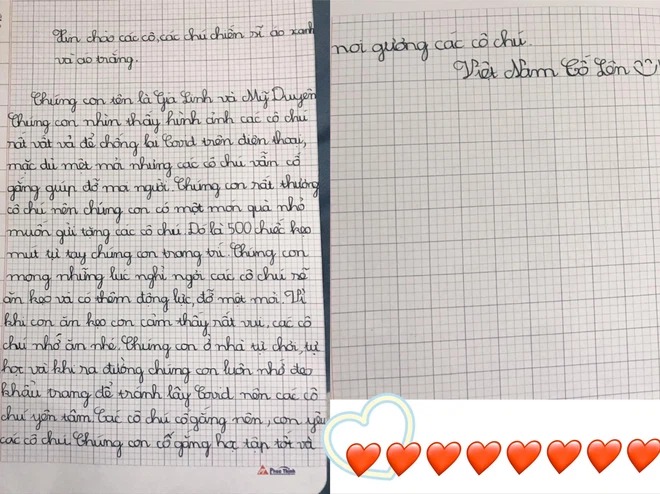 Xin chào các cô, các chú chiến sĩ áo xanh
và áo trắng.
Chúng con tên là Gia Linh và Mỹ Duyên
Chúng con nhìn thấy hình ảnh các cô chú
rất vất vả để chống lại Covid trên điện thoại,
mặc dù mệt mỏi nhưng các cô chú vẫn cố
gắng giúp đỡ mọi người. Chúng con rất thương
cô chú nên chúng con có một món quà nhỏ
muốn gửi tặng các cô chú. Đó là 500 chiếc kẹo
mút tự tay chúng con trang trí. Chúng con
mong những lúc nghỉ ngơi các cô chú sẽ
ăn kẹo và có thêm động lực, đỡ mệt mỏi. Vì
khi con ăn kẹo con cảm thấy rất vui, các cô
chú nhớ ăn nhé. Chúng con ở nhà tự chơi, tự
học và khi ra đường chúng con luôn nhớ đeo
khẩu trang để tránh lây Covid nên các cô
chú yên tâm. Các cô chú cố gắng nên, con yêu
các cô chú. Chúng con cố gắng học tập tốt và
Phúc Thịnh
noi gương các cô chú.
Việt Nam Cố Lên